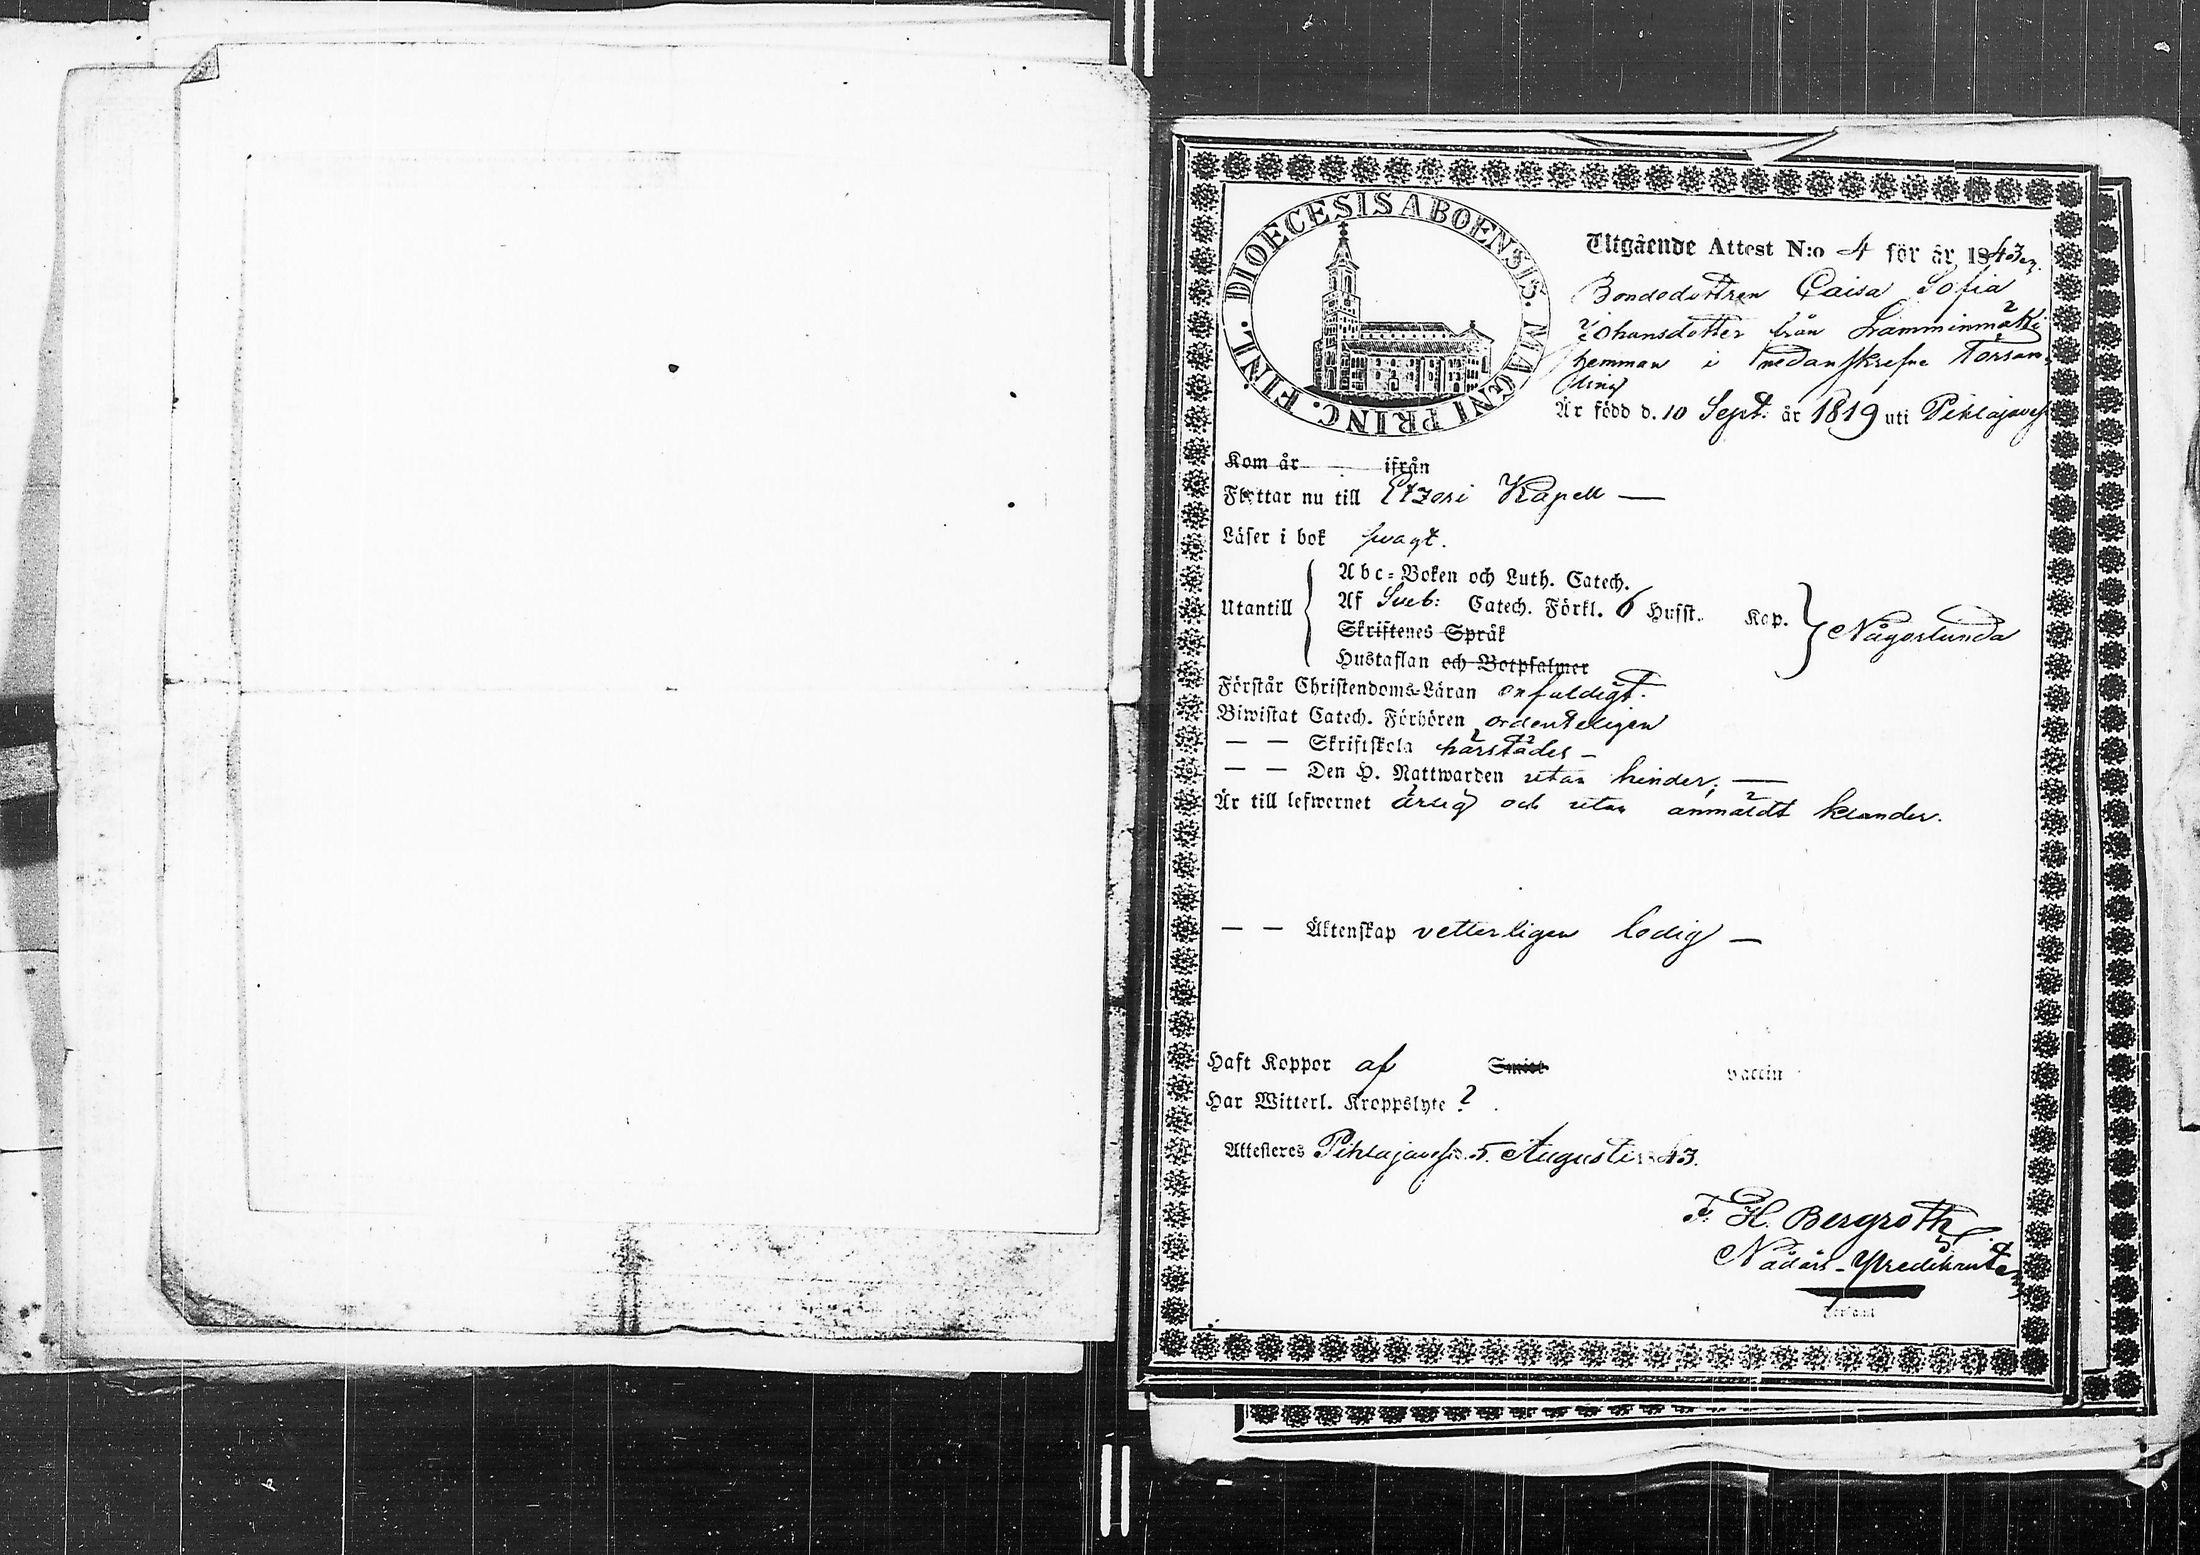 DIOECESIS ABOENSIS. MAGNI PRINC. FINL.
Utgående Attest N:o 4 för år 1843
Bondedottren Caisa Sofia
Johansdotter från Lamminmäki
hemman i nedanskrefne Försam-
ling
Är född d. 10 Sept. år 1819 uti Pihlajavesi
Kom år ifrån
Flyttar nu till Etzeri Kapell —
Läser i bok svagt.
Abc-Boken och Luth. Catech.
Utantill Af Sveb: Catech. Förkl. 6 Hufst. Kap. Någorlunda
Skriftenes Språk
Hustaflan och Botpsalmer
Förstår Christendoms-Läran enfaldigt.
Biwistat Catech. Förhören ordenteligen
— — Skriftskola härstädes —
— — Den H. Nattwarden utan hinder; —
Är till lefwernet ärlig och utan anmäldt klander.
— — Äktenskap vetterligen ledig —
Haft Koppor af Smitt vaccin
Har Witterl. Kroppslyte ?
Attesteres Pihlajavesi d. 5 Augusti 1843.
F. H. Bergroth
Nådårs-Predikant